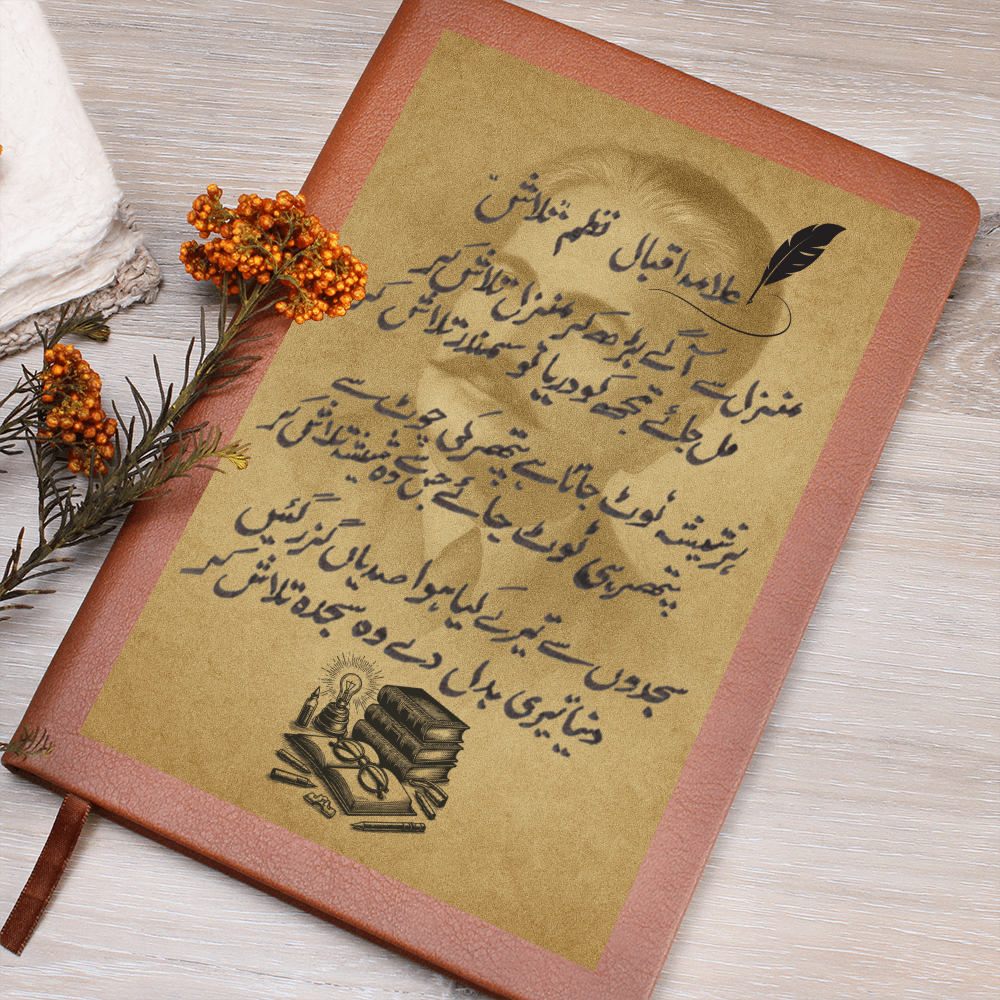 علامہ اقبال نظم "تلاش"
منزل سے آگے بڑھ کر منزل تلاش کر
مل جائے تجھ کو دریا تو سمندر تلاش کر
ہر شیشہ ٹوٹ جاتا ہے پتھر کی چوٹ سے
پتھر ہی ٹوٹ جائے جس سے وہ شیشہ تلاش کر
سجدوں سے تیرے کیا ہوا صدیاں گزر گئیں
دنیا تیری بدل دے وہ سجدہ تلاش کر